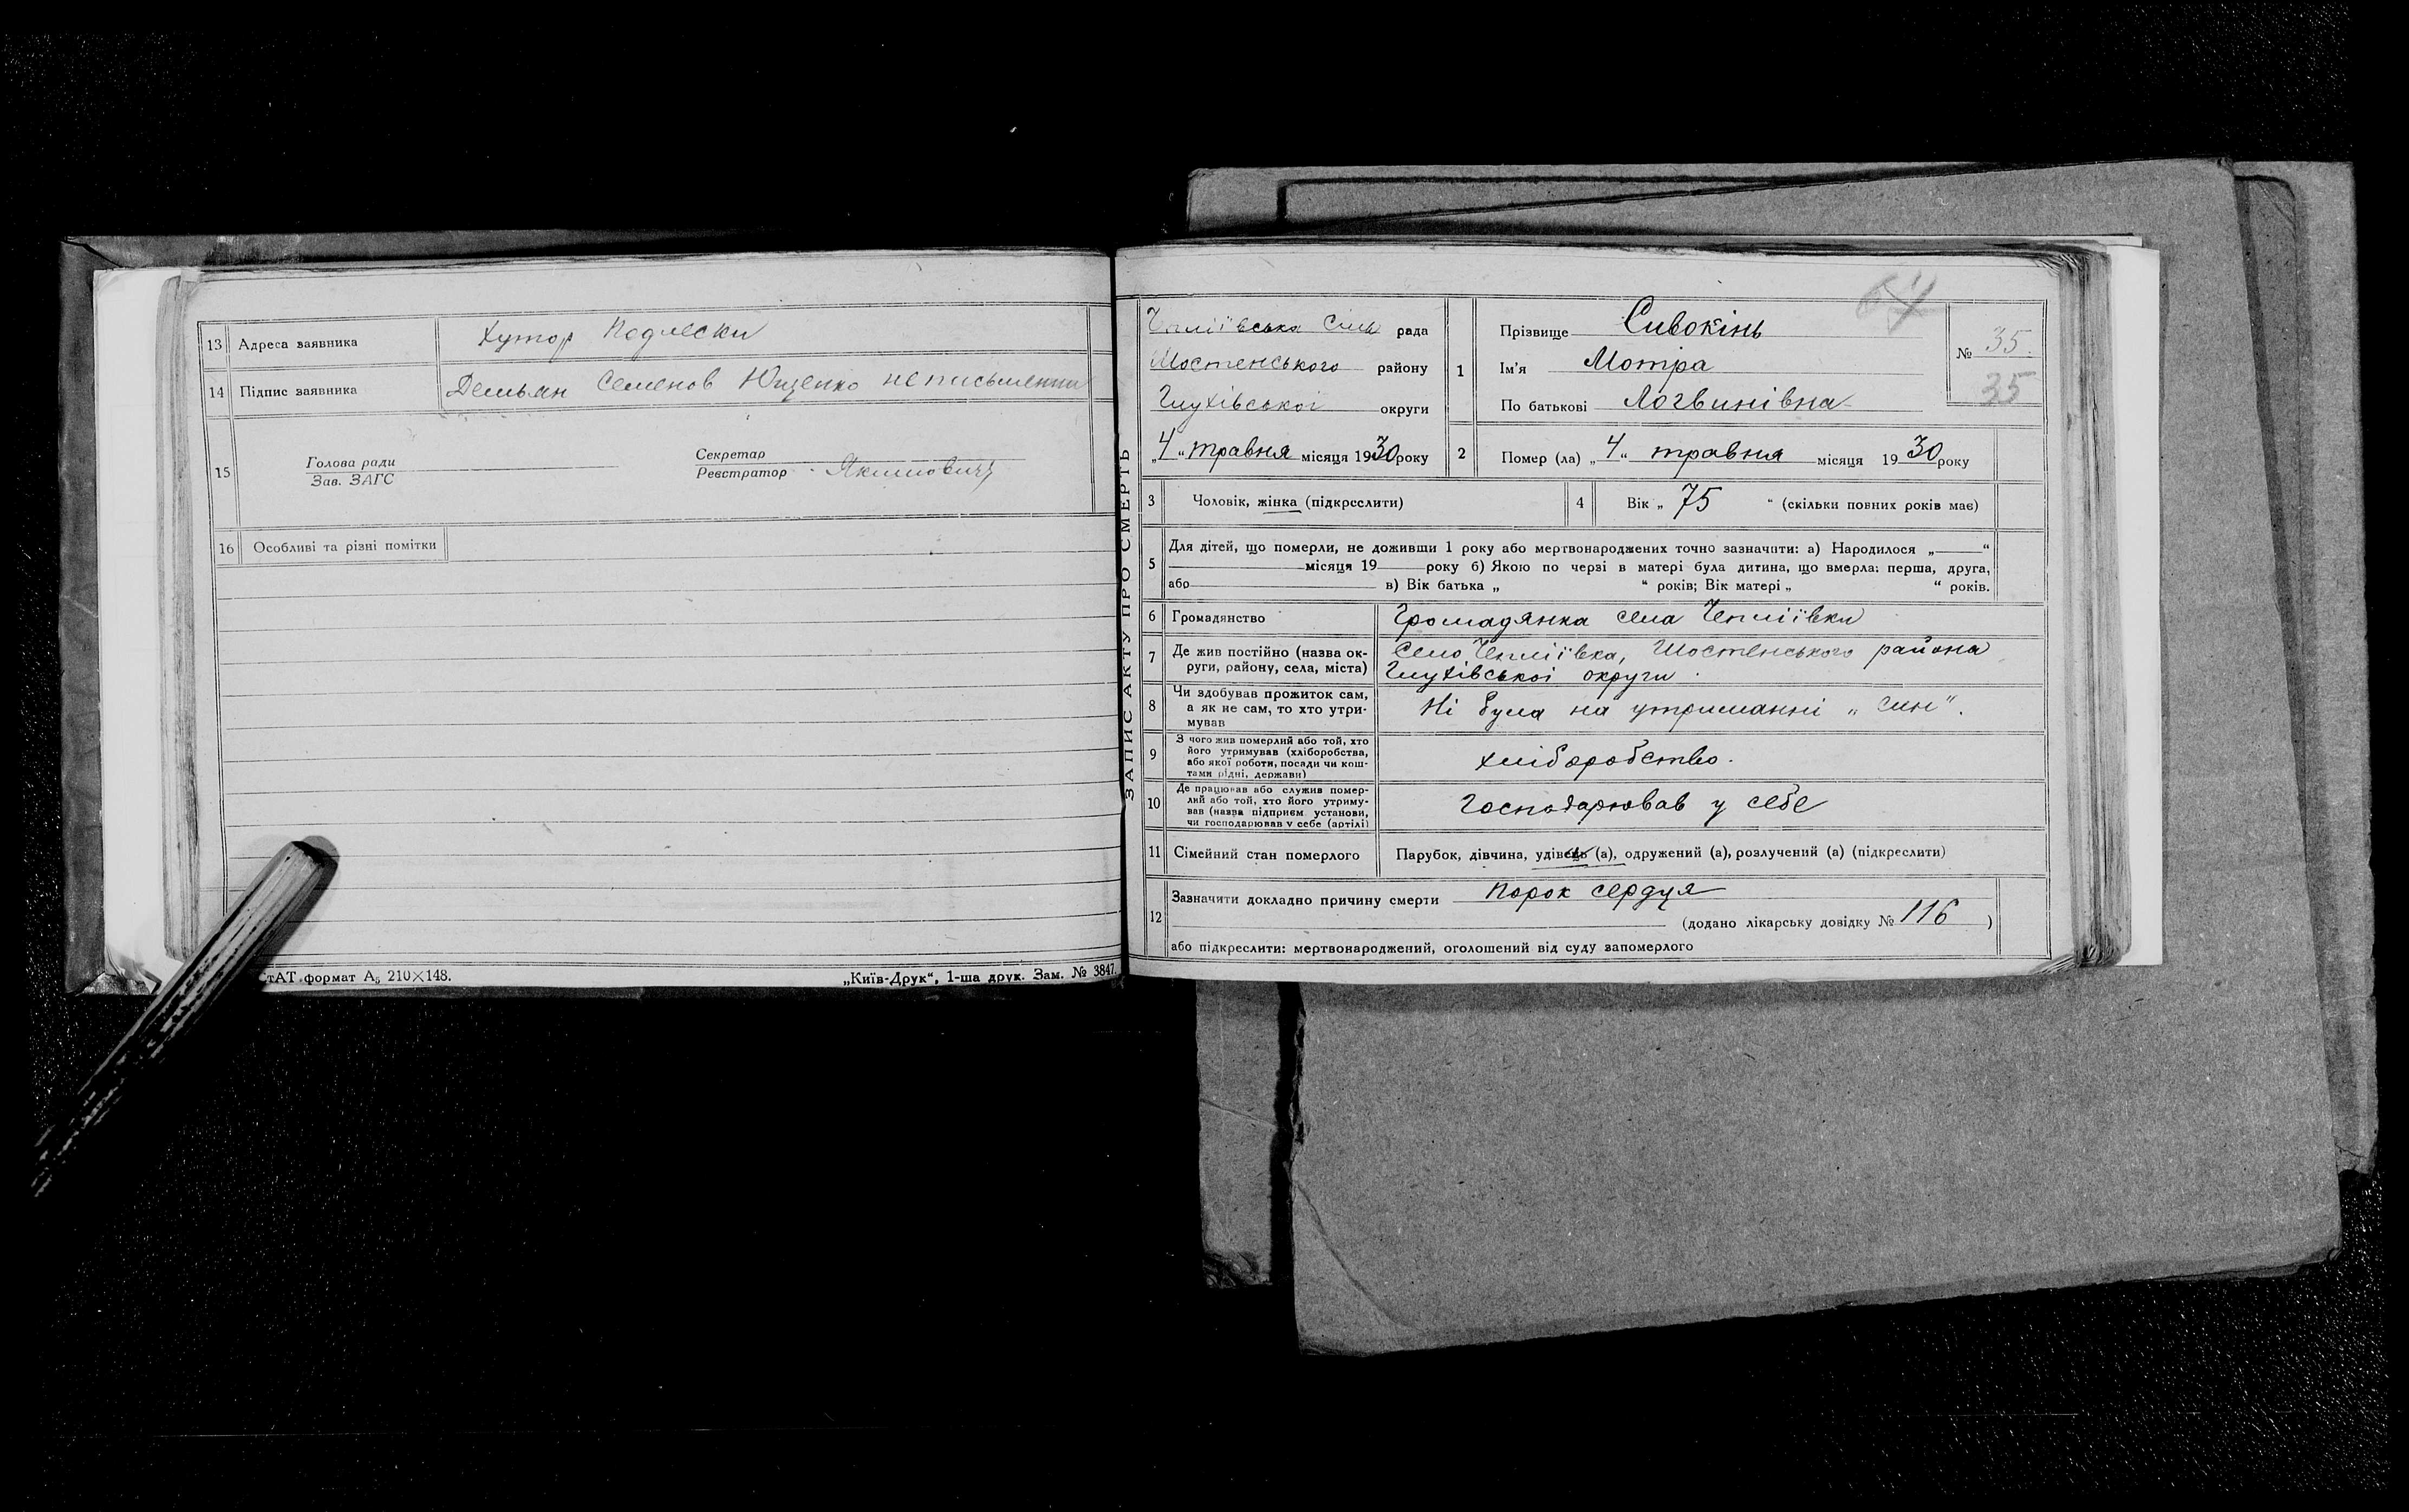 13 Адреса заявника Хутор Подлески
14 Підпис заявника Демьян Семенов Ющенко неписьменни
15 Голова ради
Зав. ЗАГС
Секретар
Реєстратор Якимович
16 Особливі та різні помітки
тАТ формат А5 210×148.
„Київ-Друк“, 1-ша друк. Зам. № 3847.
ЗАПИС АКТУ ПРО СМЕРТЬ
Чапліївська Сіль рада
Шостенського району
Глухівської округи
„4“ травня місяця 1930 року
1 Прізвище Сивокінь
Ім'я Мотра
По батькові Логвинівна
№ 35
35
2 Помер (ла) „4“ травня місяця 1930 року
3 Чоловік, жінка (підкреслити)
4 Вік „75“ (скільки повних років має)
5 Для дітей, що померли, не доживши 1 року або мертвонароджених точно зазначити: а) Народилося „ “
місяця 19 року б) Якою по черзі в матері була дитина, що вмерла: перша, друга,
або в) Вік батька „ “ років; Вік матері „ “ років.
6 Громадянство Громадянка села Чепліївки
7 Де жив постійно (назва ок-
руги, району, села, міста)
Село Чепліївка, Шостенського района
Глухівської округи.
8 Чи здобував прожиток сам,
а як не сам, то хто утри-
мував
Ні була на утриманні „син“.
9 З чого жив померлий або той, хто
його утримував (хліборобства,
або якої роботи, посади чи кош-
тами рідні, держави)
хліборобство.
10 Де працював або служив помер-
лий або той, хто його утриму-
вав (назва підприєм установи,
чи господарював у себе (артілі)
Господарював у себе
11 Сімейний стан померлого Парубок, дівчина, удівець (а), одружений (а), розлучений (а) (підкреслити)
12 Зазначити докладно причину смерти Порок сердця
(додано лікарську довідку № 116 )
або підкреслити: мертвонароджений, оголошений від суду запомерлого